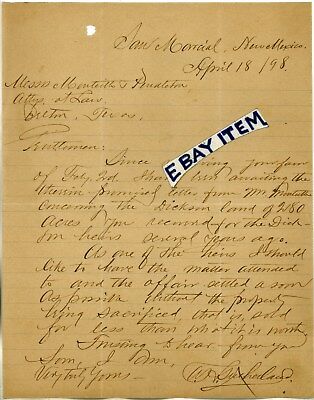 San Marcial, New Mexico.
April 18/98.
Messrs Monteith & Pendleton
Attys. at Law.
Belton, Texas.
Gentlemen:
Since your favor
of July 3rd I have been awaiting the
therein promised letter from Mr. Monteith
concerning the Dickson land of 2180
Acres you recovered for the Dick-
son heirs several years ago.
As one of the heirs I should
like to have the matter attended
to and the affair settled as soon
as possible without the property
being sacrificed, that is, sold
for less than what it is worth
Trusting to hear from you
Soon, I Am,
Very truly Yours—
Sutherland.
E BAY ITEM